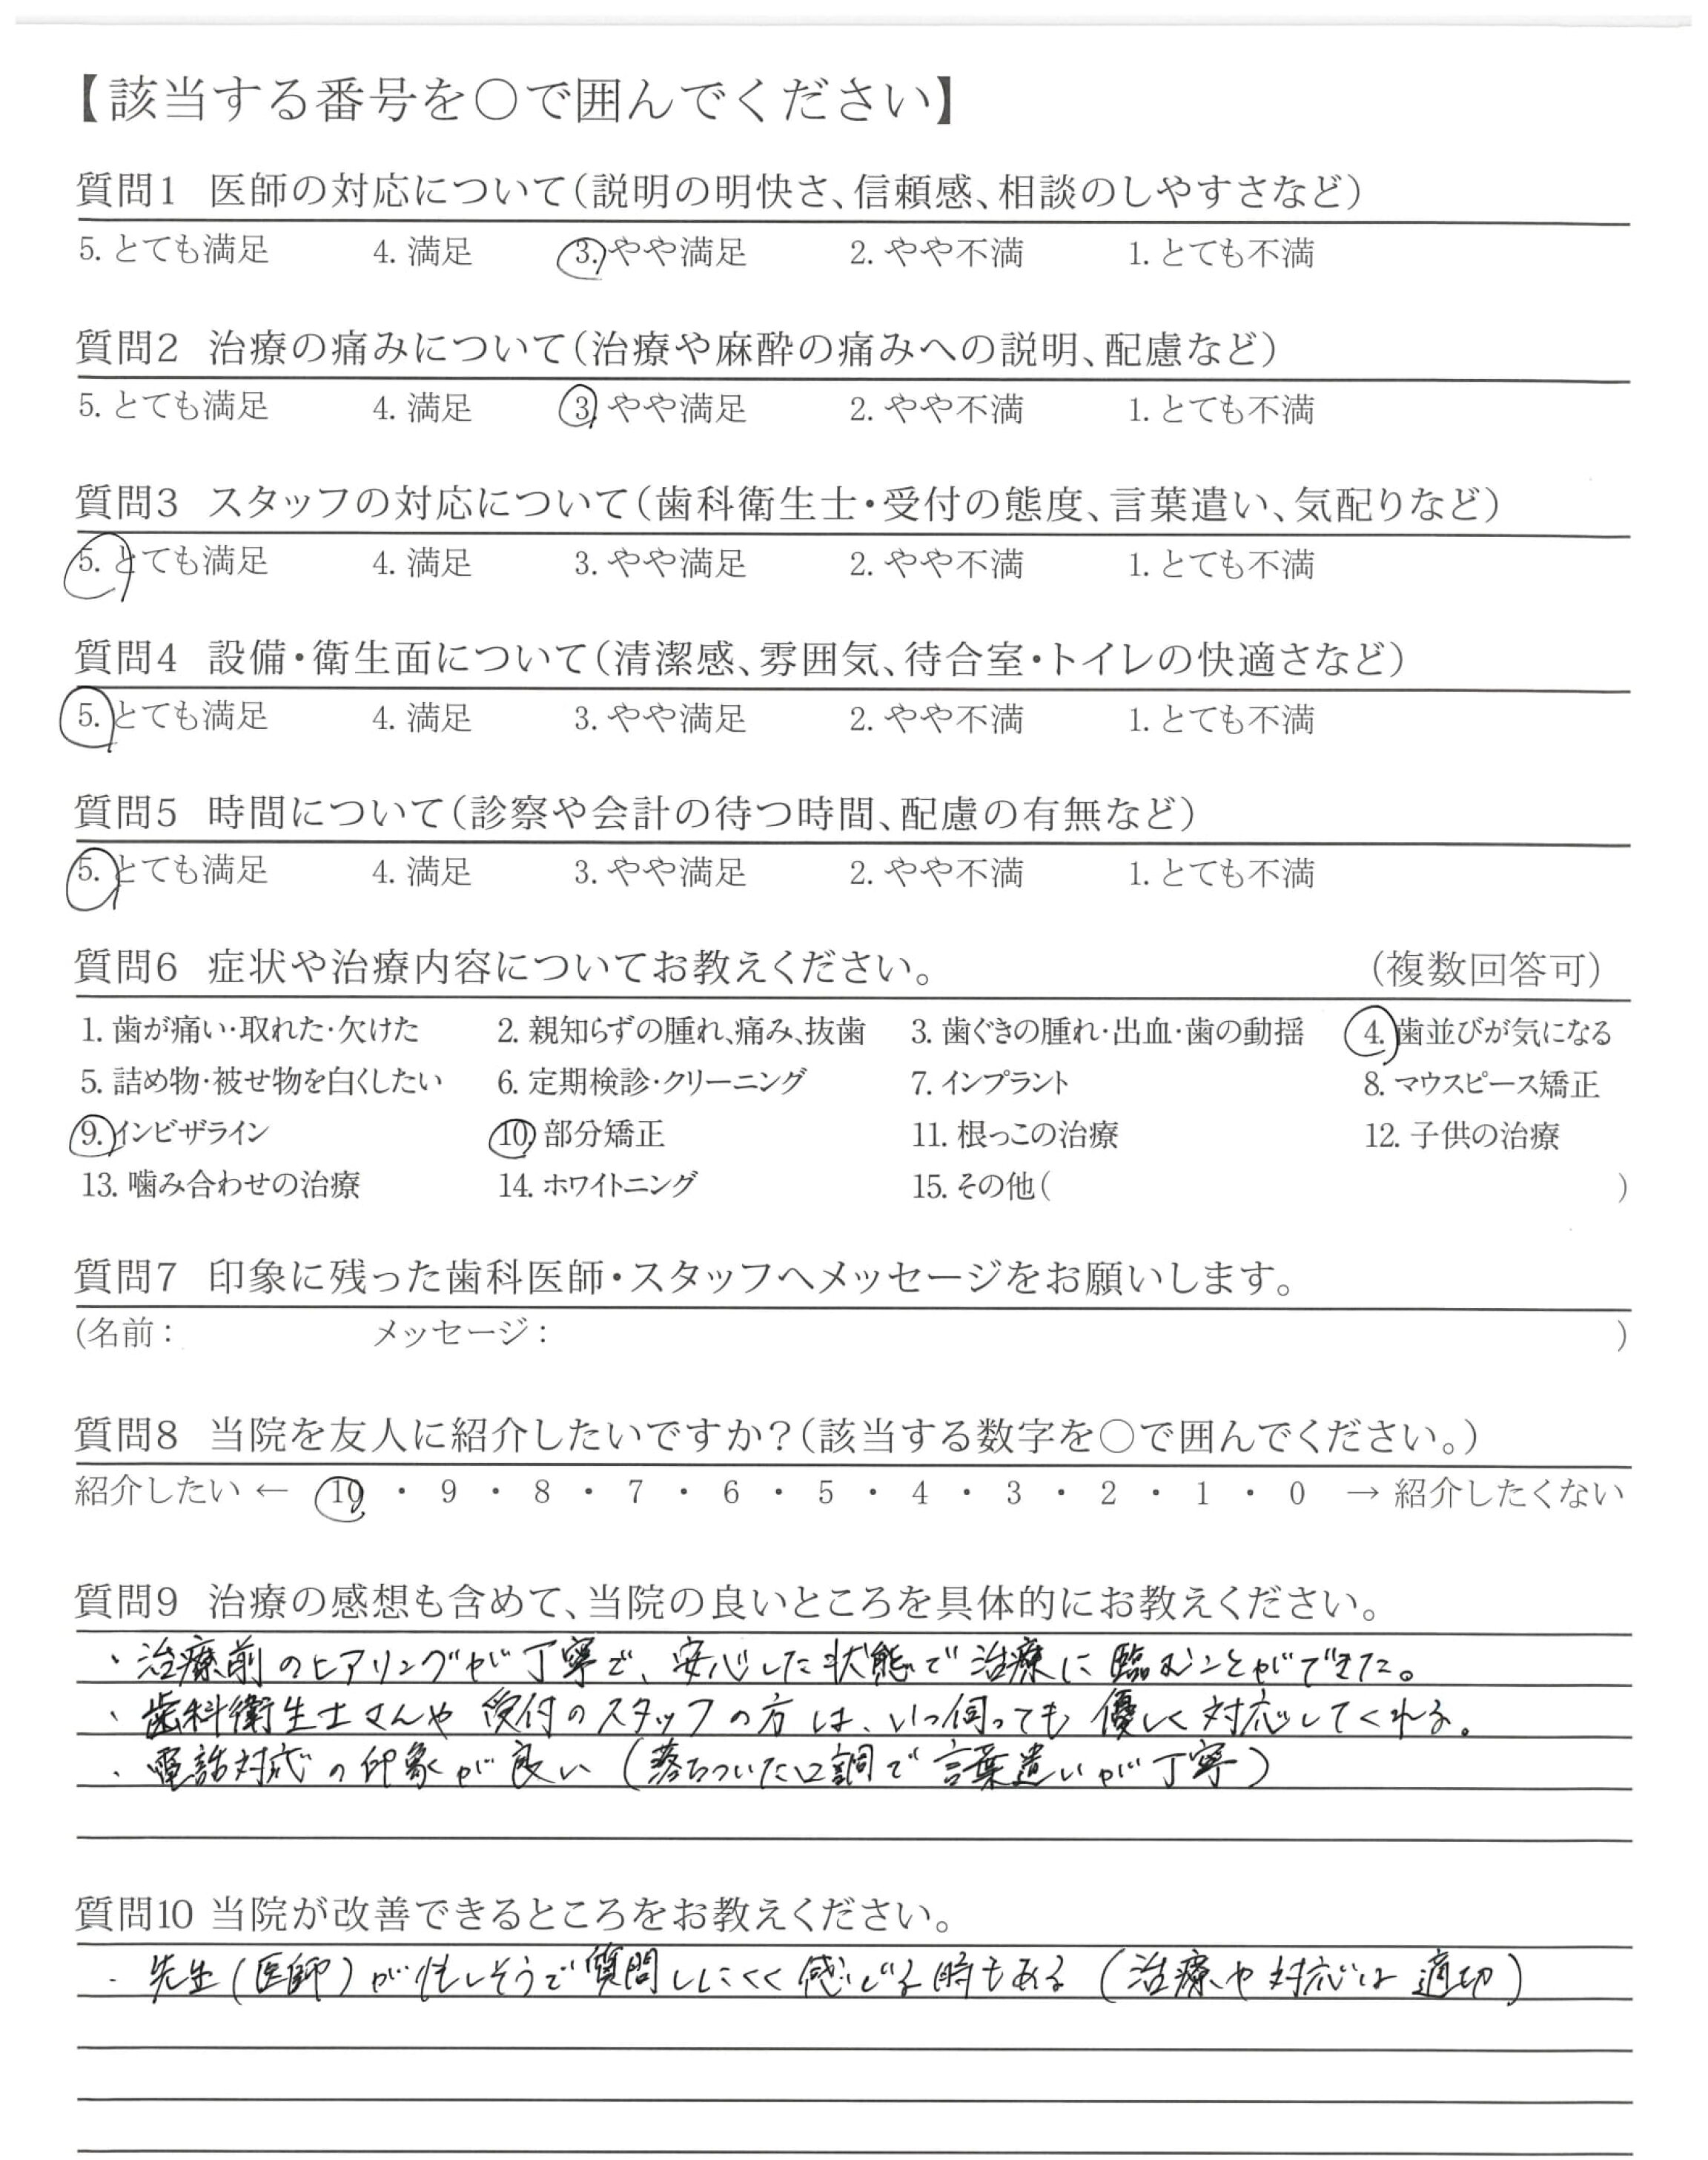 【該当する番号を○で囲んでください】
質問1 医師の対応について（説明の明快さ、信頼感、相談のしやすさなど）
5. とても満足 4. 満足 3. やや満足 2. やや不満 1. とても不満
質問2 治療の痛みについて（治療や麻酔の痛みへの説明、配慮など）
5. とても満足 4. 満足 3. やや満足 2. やや不満 1. とても不満
質問3 スタッフの対応について（歯科衛生士・受付の態度、言葉遣い、気配りなど）
5. とても満足 4. 満足 3. やや満足 2. やや不満 1. とても不満
質問4 設備・衛生面について（清潔感、雰囲気、待合室・トイレの快適さなど）
5. とても満足 4. 満足 3. やや満足 2. やや不満 1. とても不満
質問5 時間について（診察や会計の待つ時間、配慮の有無など）
5. とても満足 4. 満足 3. やや満足 2. やや不満 1. とても不満
質問6 症状や治療内容についてお教えください。 （複数回答可）
1. 歯が痛い・取れた・欠けた 2. 親知らずの腫れ、痛み、抜歯 3. 歯ぐきの腫れ・出血・歯の動揺 4. 歯並びが気になる
5. 詰め物・被せ物を白くしたい 6. 定期検診・クリーニング 7. インプラント 8. マウスピース矯正
9. インビザライン 10. 部分矯正 11. 根っこの治療 12. 子供の治療
13. 噛み合わせの治療 14. ホワイトニング 15. その他（ ）
質問7 印象に残った歯科医師・スタッフへメッセージをお願いします。
（名前： メッセージ： ）
質問8 当院を友人に紹介したいですか？（該当する数字を○で囲んでください。）
紹介したい ← 10 ・ 9 ・ 8 ・ 7 ・ 6 ・ 5 ・ 4 ・ 3 ・ 2 ・ 1 ・ 0 → 紹介したくない
質問9 治療の感想も含めて、当院の良いところを具体的にお教えください。
・治療前のヒアリングが丁寧で、安心した状態で治療に臨むことができた。
・歯科衛生士さんや受付のスタッフの方は、いつ伺っても優しく対応してくれる。
・電話対応の印象が良い（落ちついた口調で言葉遣いが丁寧）
質問10 当院が改善できるところをお教えください。
・先生（医師）が忙しそうで質問しにくく感じる時もある（治療や対応は適切）